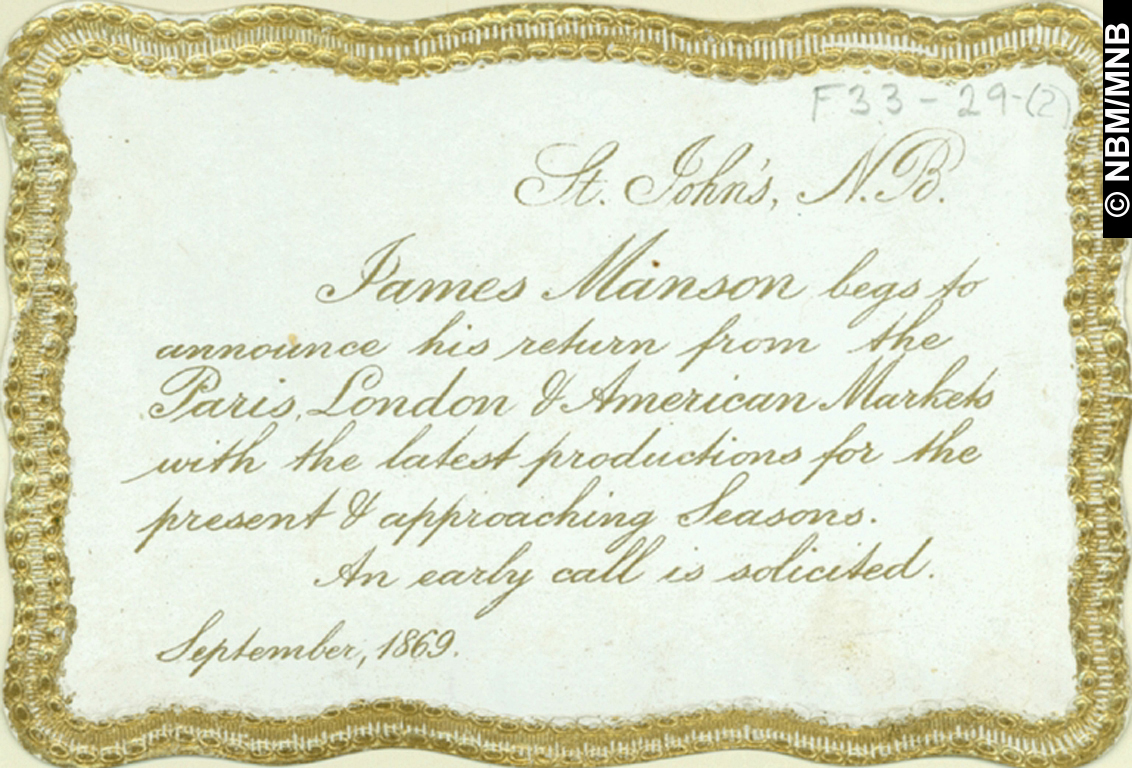 F33-29-(2)
© NBM/MNB
St. John's, N.B.
James Manson begs to
announce his return from the
Paris, London & American Markets
with the latest productions for the
present & approaching Seasons.
An early call is solicited.
September, 1869.